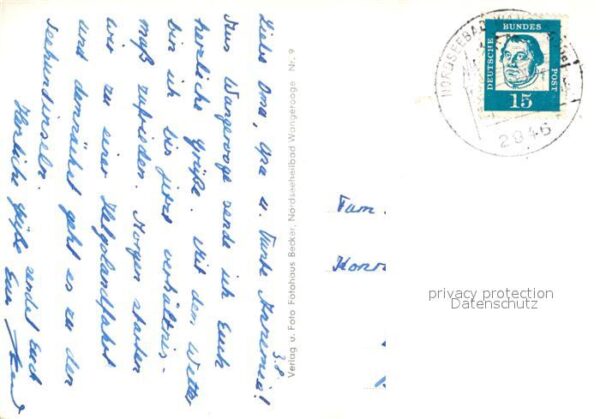 Liebe Oma, Opa u. Tante Annemie!
3.8.
Aus Wangerooge sende ich Euch
herzliche Grüße. Mit dem Wetter
bin ich bis jetzt verhältnis-
mäß zufrieden. Morgen starten
wir zu einer Helgolandfahrt
und demnächst geht es zu den
Seehundinseln.
Herzliche Grüße sendet Euch
Euer
Verlag u. Foto Fotohaus Becker, Nordseeheilbad Wangerooge Nr. 9
NORDSEEBAD WANGEROOGE
2946
DEUTSCHE BUNDES POST
15
Fam.
Konr
privacy protection
Datenschutz